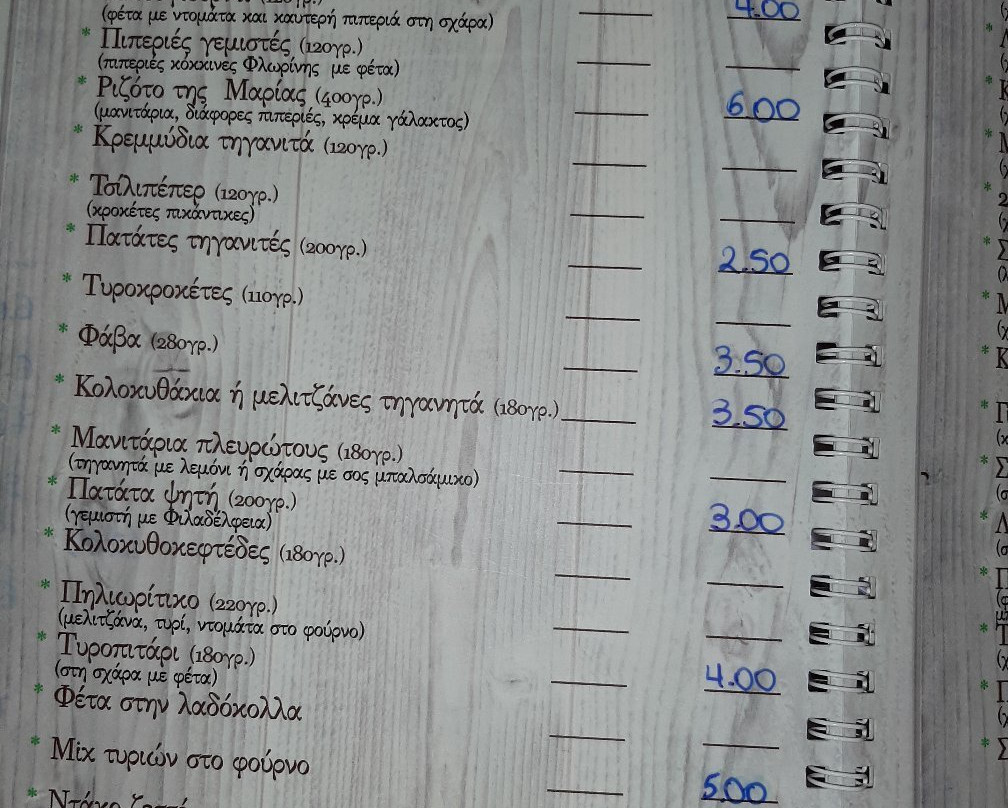 (φέτα με ντομάτα και καυτερή πιπεριά στη σχάρα) 4.00
* Πιπεριές γεμιστές (120γρ.)
(πιπεριές κόκκινες Φλωρίνης με φέτα)
* Ριζότο της Μαρίας (400γρ.) 6.00
(μανιτάρια, διάφορες πιπεριές, κρέμα γάλακτος)
* Κρεμμύδια τηγανιτά (120γρ.)
* Τσίλιπέπερ (120γρ.)
(κροκέτες πικάντικες)
* Πατάτες τηγανιτές (200γρ.) 2.50
* Τυροκροκέτες (110γρ.)
* Φάβα (280γρ.) 3.50
* Κολοκυθάκια ή μελιτζάνες τηγανητά (180γρ.) 3.50
* Μανιτάρια πλευρώτους (180γρ.)
(τηγανητά με λεμόνι ή σχάρας με σος μπαλσάμικο)
* Πατάτα ψητή (200γρ.) 3.00
(γεμιστή με Φιλαδέλφεια)
* Κολοκυθοκεφτέδες (180γρ.)
* Πηλιωρίτικο (220γρ.)
(μελιτζάνα, τυρί, ντομάτα στο φούρνο)
* Τυροπιτάρι (180γρ.) 4.00
(στη σχάρα με φέτα)
* Φέτα στην λαδόκολλα
* Μix τυριών στο φούρνο 5.00